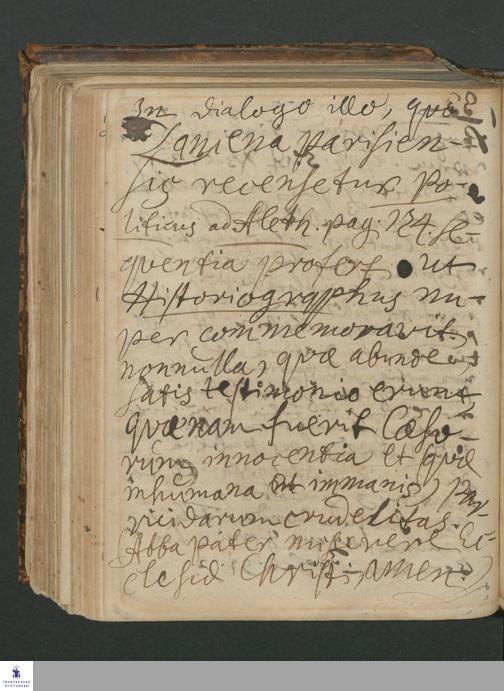 In dialogo illo, quo
Laniena parisien-
sis recensetur Po-
liticus ad Aleth. pag. 134. se-
quentia profert ut
Historiographus nu-
per commemoravit
nonnulla, quæ abunde
satis testimonio erunt
quænam fuerit Cæso-
rum innocentia et quæ
inhumana et immanis par-
ricidarum crudelitas.
Abba pater miserere Ec-
clesiæ Christi, Amen.
FRANCKESCHE
STIFTUNGEN